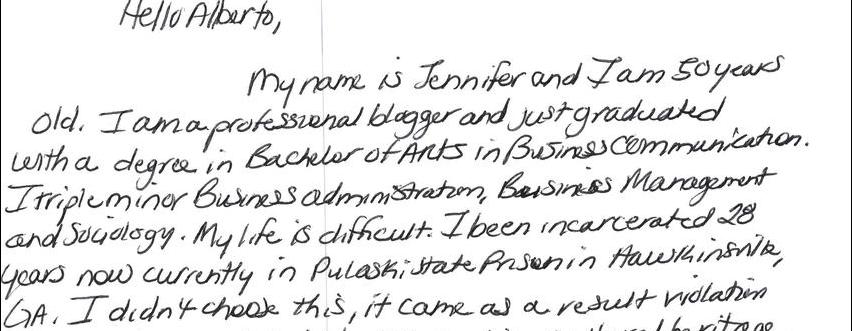 Hello Alberto,
My name is Jennifer and I am 50 years
old. I am a professional blogger and just graduated
with a degree in Bachelor of Arts in Business Communication.
I triple minor Business administration, Business Management
and Sociology. My life is difficult. I been incarcerated 28
years now currently in Pulaski State Prison in Hawkinsville,
GA. I didn't choose this, it came as a result violation